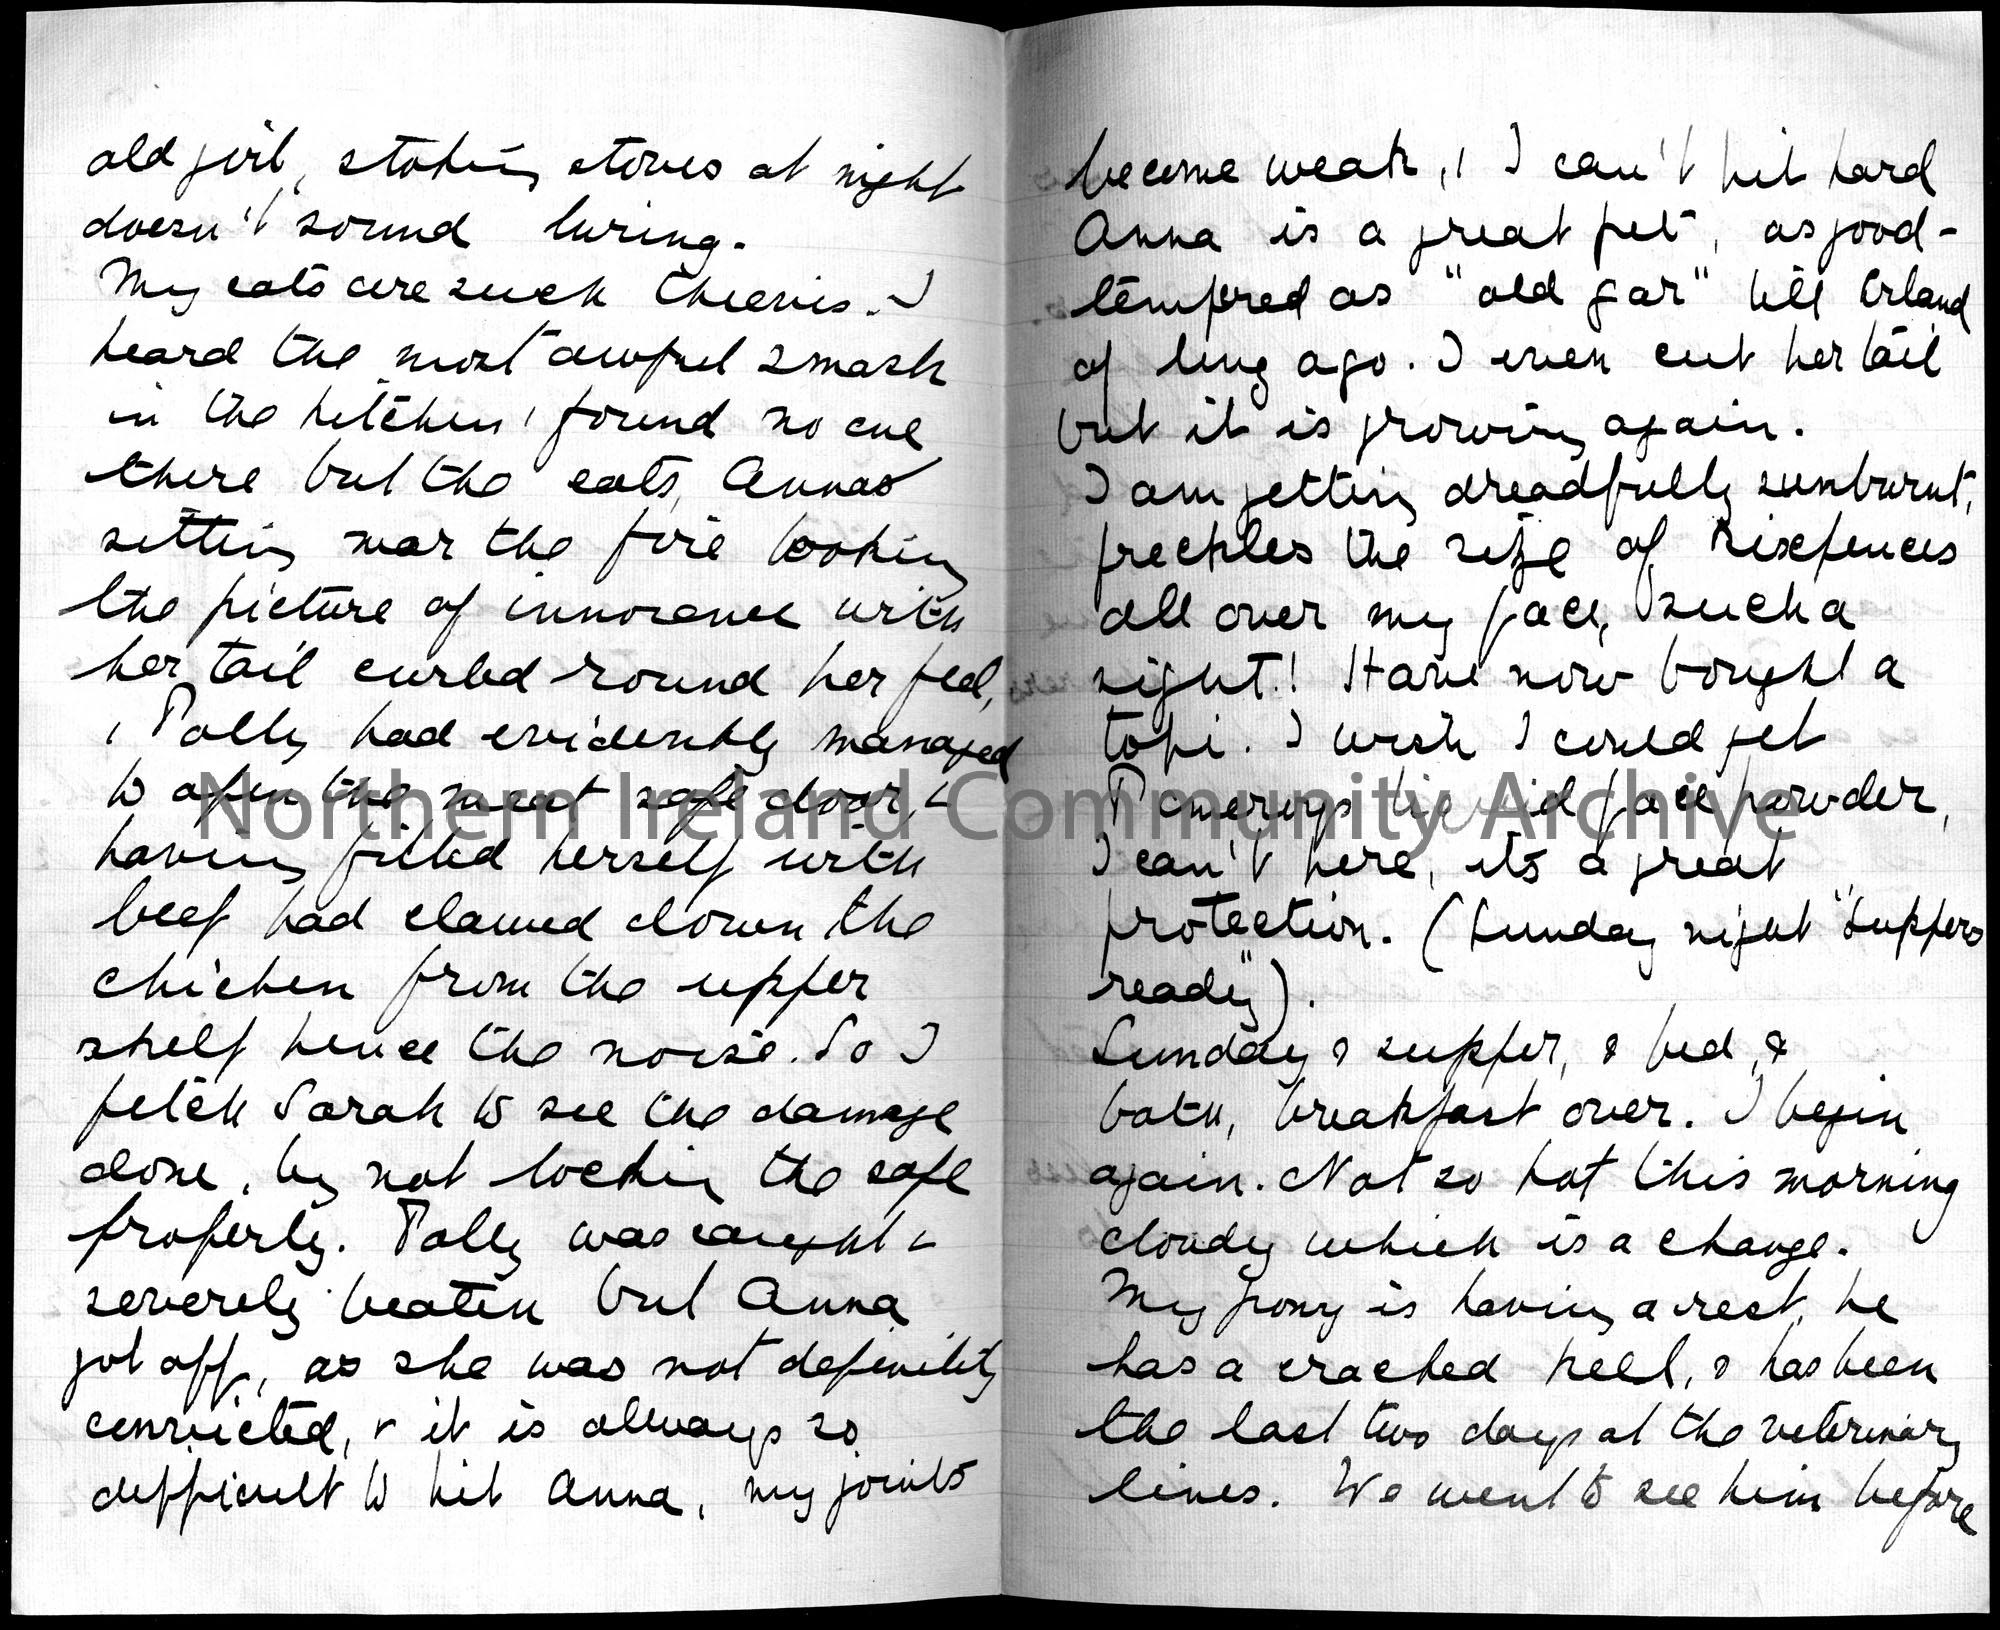 old girl, stoking stoves at night
doesn't sound luring.
My cats are such theives. I
heard the most awful smash
in the kitchen & found no one
there but the cats, Anna
sitting near the fire looking
the picture of innocence with
her tail curled round her feet,
& Polly had evidently managed
to open the meat safe door, &
having filled herself with
beef had clawed down the
chicken from the upper
shelf hence the noise. So I
fetch Sarah to see the damage
done, by not locking the safe
properly. Polly was caught &
severely beaten but Anna
got off, as she was not definitely
convicted, & it is always so
difficult to hit Anna, my joints
become weak, & I can't hit hard
Anna is a great pet, as good-
tempered as "old gar"
of long ago. I even cut her tail
but it is growing again.
I am getting dreadfully sunburnt,
freckles the size of sixpences
all over my face, such a
sight! Have now bought a
topi. I wish I could get
Pomeroys liquid face powder,
I can't here, its a great
protection. (Sunday night "Suppers
ready").
Sunday & supper, & bed, &
bath, breakfast over. I begin
again. Not so hot this morning
cloudy which is a change.
My pony is having a rest, he
has a cracked heel, & has been
the last two days at the veterinary
lines. We went to see him before
Northern Ireland Community Archive